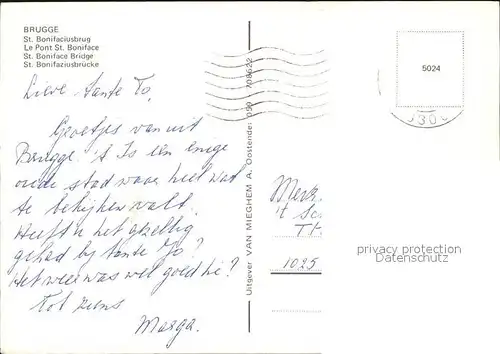 BRUGGE
St. Bonifaciusbrug
Le Pont St. Boniface
St. Boniface Bridge
St. Bonifaziusbrücke
Lieve Tante To,
Groetjes van uit
Brugge. 't Is een enige
oude stad waar heel wat
te bekijken valt.
Heeft u het gezellig
gehad bij tante Jo?
Het weer was wel goed hè?
Tot ziens
Marga.
Uitgever VAN MIEGHEM A. Oostende 059 708622
5024
Mevr.
't Sc
1025
privacy protection
Datenschutz